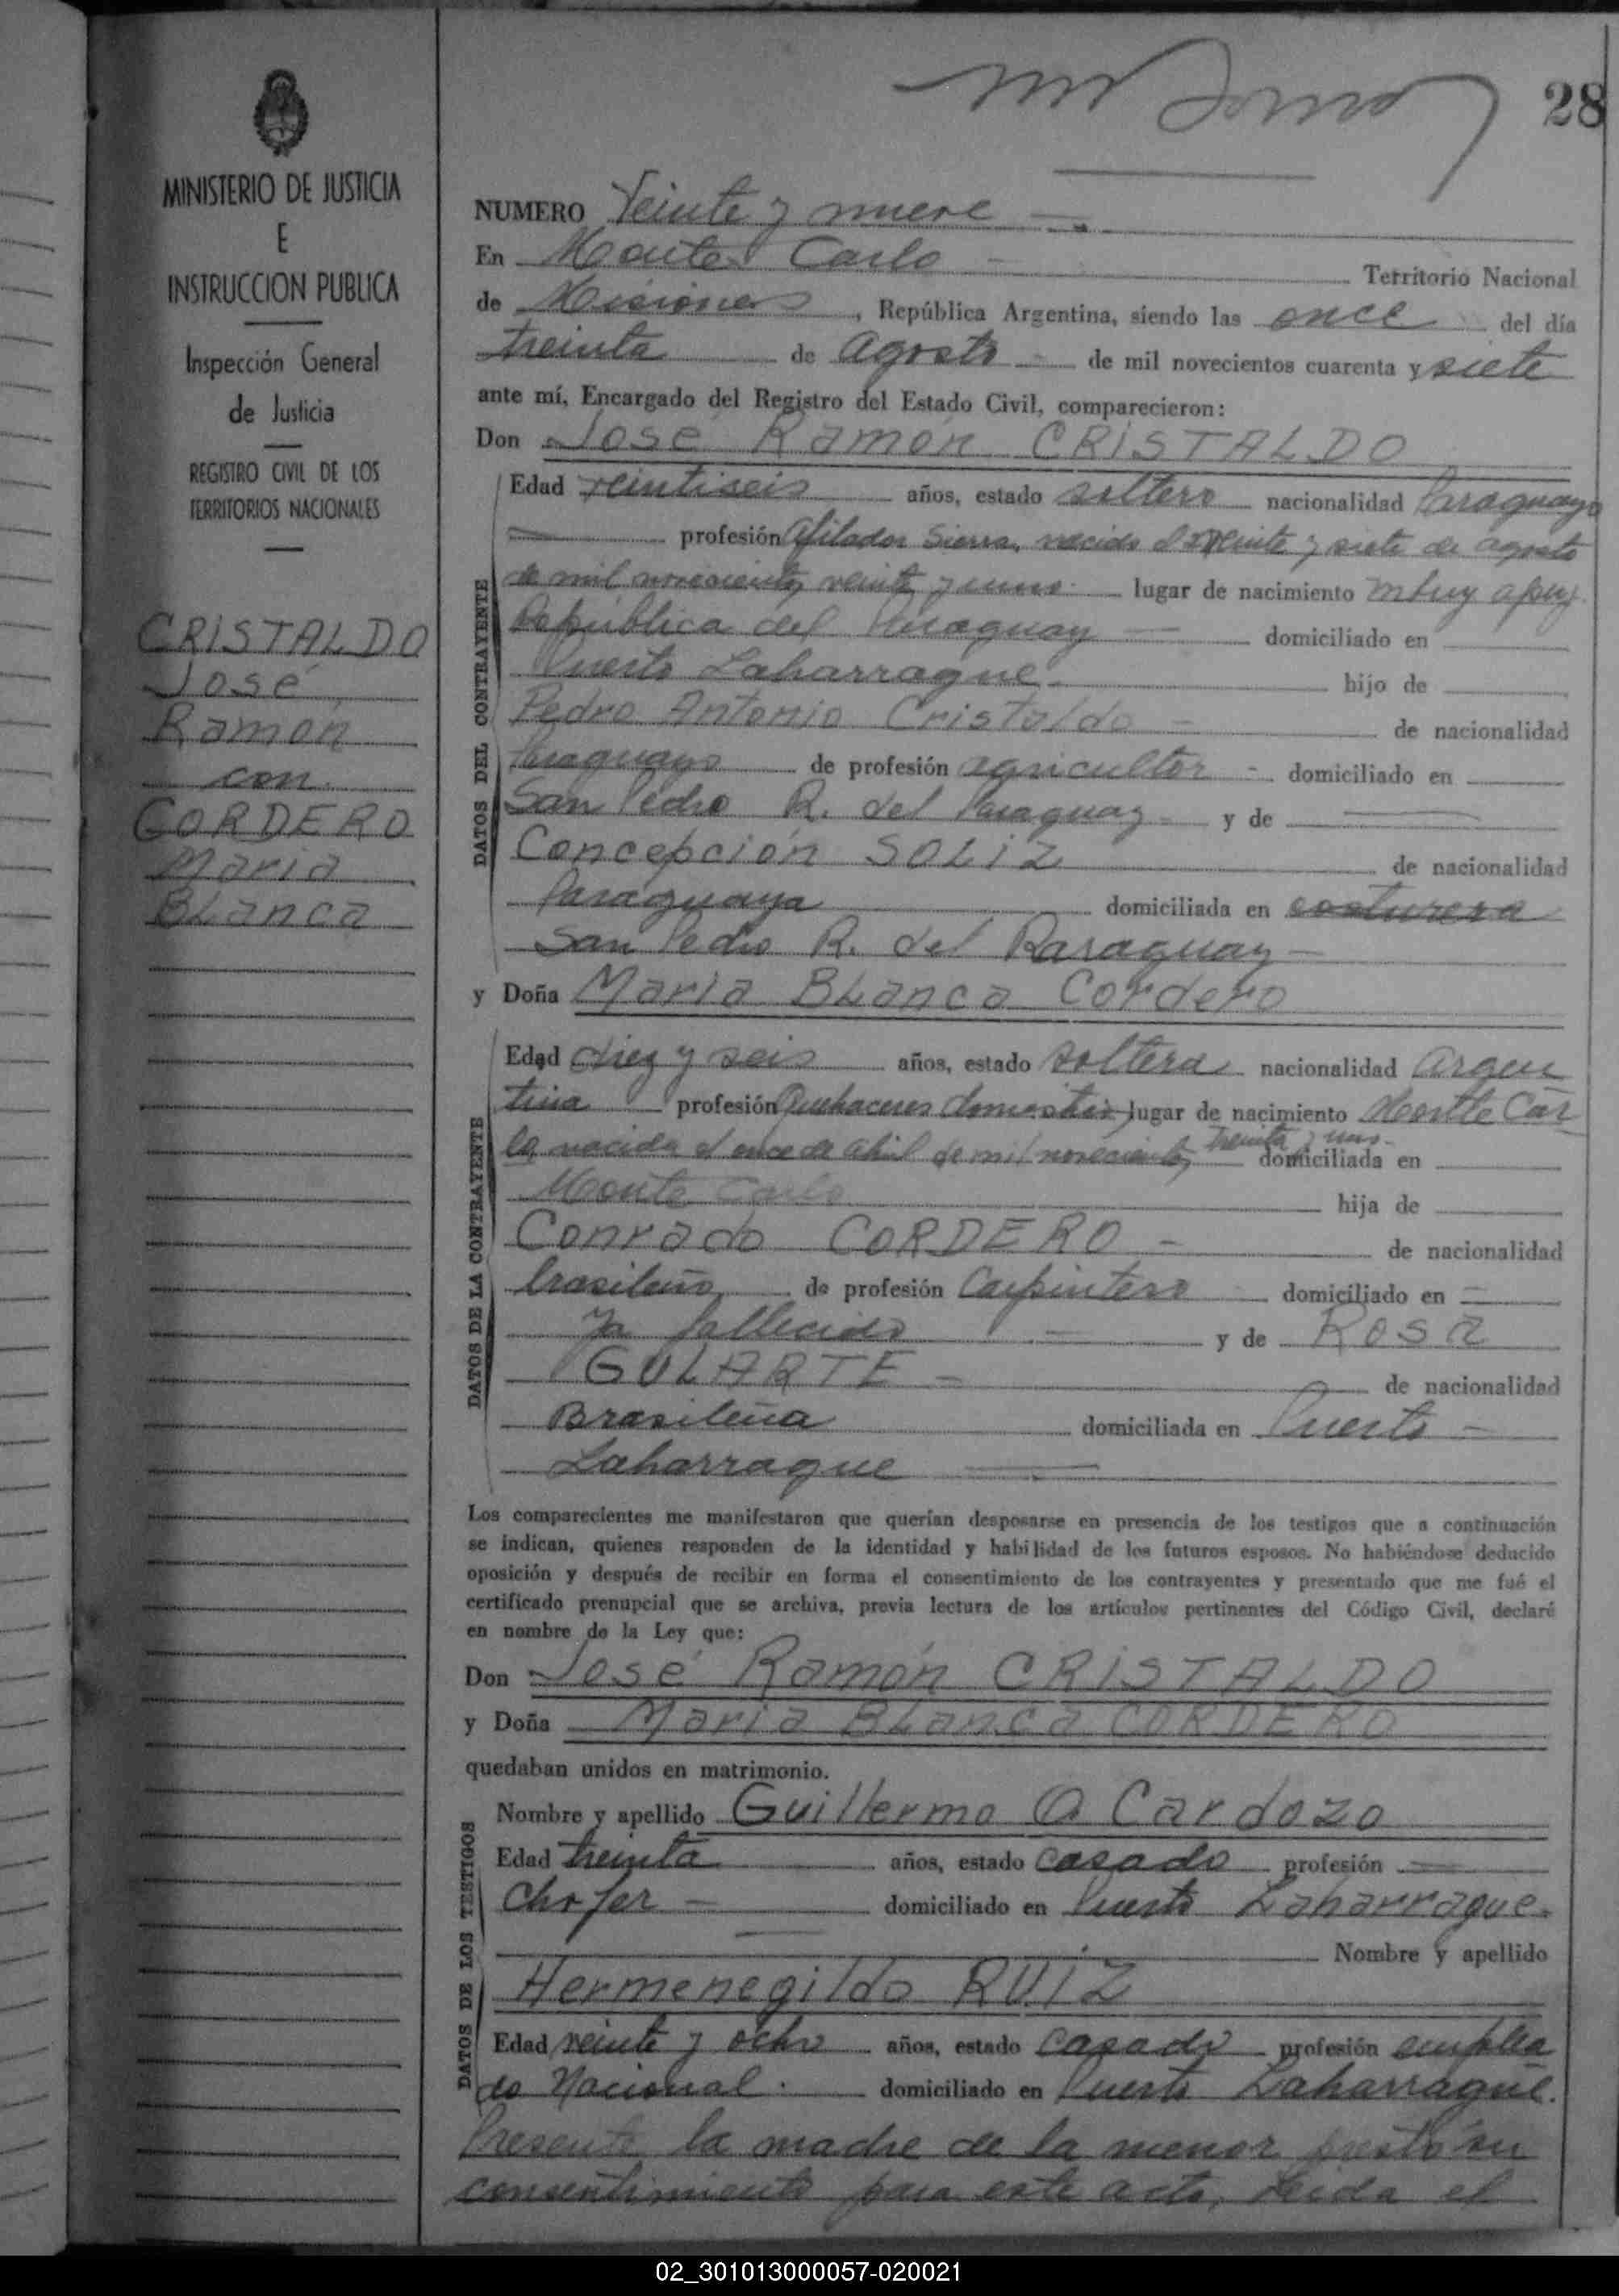 28
MINISTERIO DE JUSTICIA
E
INSTRUCCION PUBLICA
Inspección General
de Justicia
REGISTRO CIVIL DE LOS
TERRITORIOS NACIONALES
CRISTALDO
José
Ramón
con
CORDERO
Maria
BLanca
NUMERO Veinte y nueve
En Monte Carlo Territorio Nacional
de Misiones, República Argentina, siendo las once del día
treinta de agosto de mil novecientos cuarenta y siete
ante mí, Encargado del Registro del Estado Civil, comparecieron:
Don José Ramón CRISTALDO
DATOS DEL CONTRAYENTE
Edad veintiseis años, estado soltero nacionalidad Paraguayo
profesión Afilador Sierra, nacido el veinte y siete de agosto
de mil novecientos veinte y uno. lugar de nacimiento
República del Paraguay domiciliado en
Puerto Laharrague hijo de
Pedro Antonio Cristaldo de nacionalidad
Paraguayo de profesión agricultor domiciliado en
San Pedro R. del Paraguay y de
Concepción SOLiZ de nacionalidad
Paraguaya domiciliada en costurera
San Pedro R. del Paraguay
y Doña Maria BLanca Cordero
DATOS DE LA CONTRAYENTE
Edad diez y seis años, estado soltera nacionalidad Argen
tina profesión Quehaceres domesticos lugar de nacimiento Monte Car
lo, nacida el once de abril de mil novecientos treinta y uno. domiciliada en
Monte Carlo hija de
Conrado CORDERO de nacionalidad
brasileño de profesión Carpintero domiciliado en
Ya fallecido y de Rosa
GULARTE de nacionalidad
Brasileña domiciliada en Puerto
Laharrague
Los comparecientes me manifestaron que querían desposarse en presencia de los testigos que a continuación
se indican, quienes responden de la identidad y habilidad de los futuros esposos. No habiéndose deducido
oposición y después de recibir en forma el consentimiento de los contrayentes y presentado que me fué el
certificado prenupcial que se archiva, previa lectura de los artículos pertinentes del Código Civil, declaré
en nombre de la Ley que:
Don José Ramón CRISTALDO
y Doña Maria BLanca CORDERO
quedaban unidos en matrimonio.
DATOS DE LOS TESTIGOS
Nombre y apellido Guillermo A Cardozo
Edad treinta años, estado casado profesión
Chofer domiciliado en Puerto Laharrague.
Nombre y apellido
Hermenegildo RUIZ
Edad veinte y ocho años, estado casado profesión emplea
do Nacional. domiciliado en Puerto Laharrague.
Presente la madre de la menor prestó su
consentimiento para este acto. Leida el
02_301013000057-020021